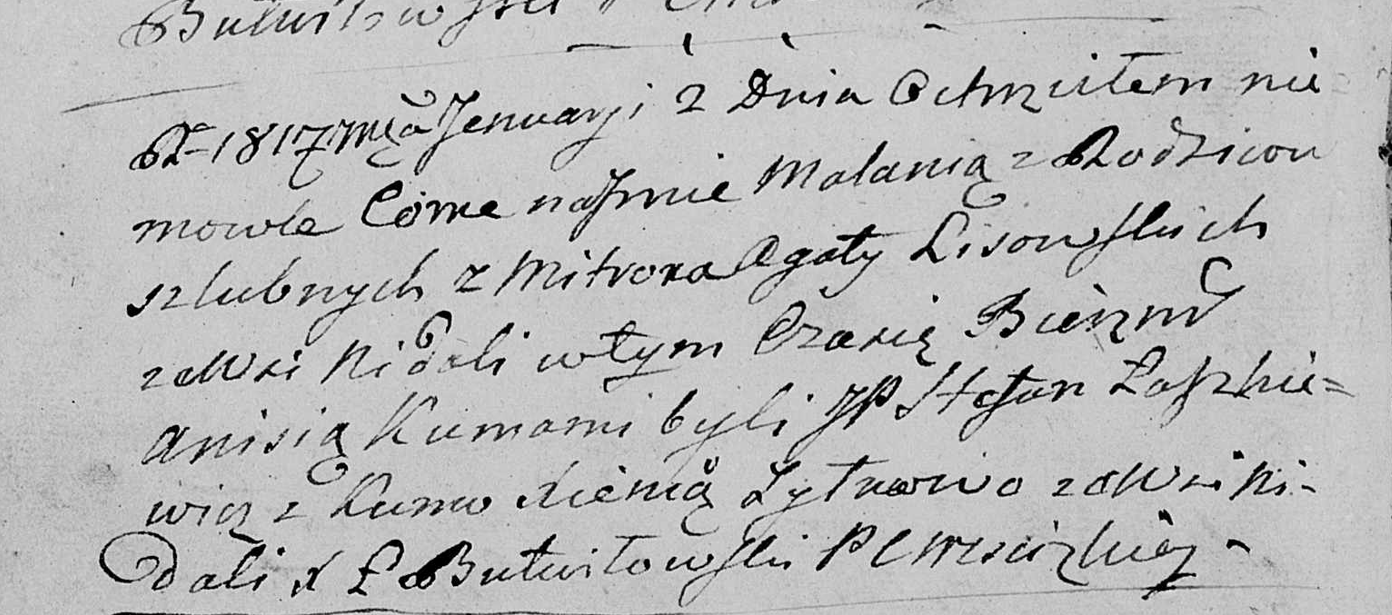 Butwiłowski
1817 Mca Jenuaryi 2 Dnia Ochrzciłem nie
mowle Córke na Jmie Malanią z Rodzicow
szlubnych z Mitrona Agaty Lisowskich
ze Wsi Nidali w tym Czasię Bierzm
anisią Kumami byli JP Stefan Łaszkie=
wicz z Kumo Xienią Zytkowo ze Wsi Ni-
dali X Butwiłowski P C